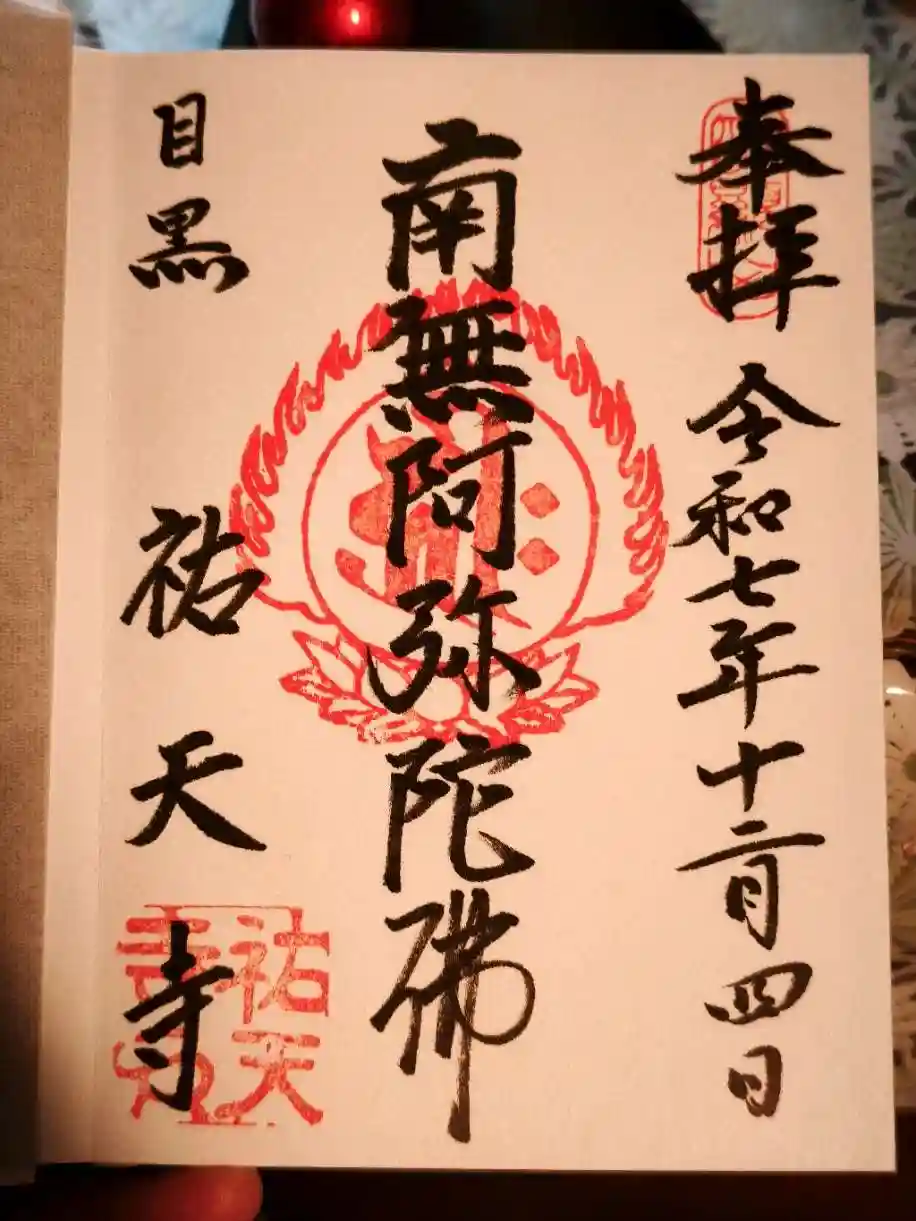 奉拝 令和七年十二月四日
南無阿弥陀佛
目黒 祐天寺
祐天